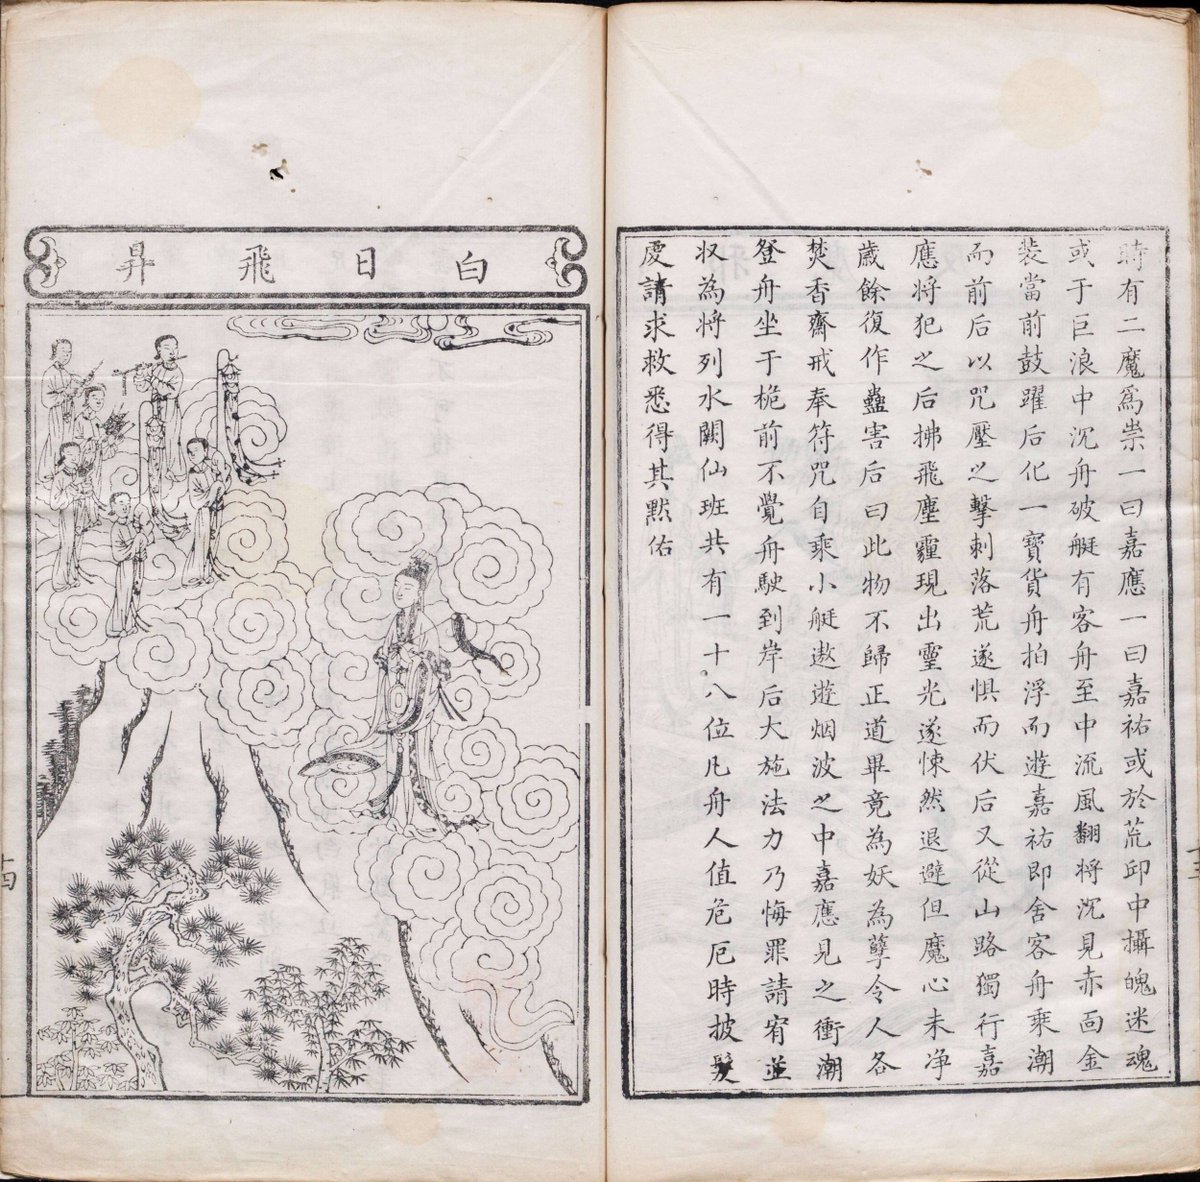 時有二魔爲祟一曰嘉應一曰嘉祐或於荒邱中攝魄迷魂
或于巨浪中沉舟破艇有客舟至中流風翻將沉見赤面金
裝當前鼓躍后化一寶貨舟拍浮而遊嘉祐即舍客舟乘潮
而前后以咒壓之擊刺落荒遂惧而伏后又從山路獨行嘉
應將犯之后拂飛塵霾現出靈光遂悚然退避但魔心未净
歲餘復作蠱害后曰此物不歸正道畢竟為妖為孽令人各
焚香齋戒奉符咒自乘小艇遨遊烟波之中嘉應見之衝潮
登舟坐于桅前不覺舟駛到岸后大施法力乃悔罪請宥並
収為将列水闕仙班共有一十八位凡舟人值危厄時披髮
虔請求救悉得其默佑
白日飛昇
十四